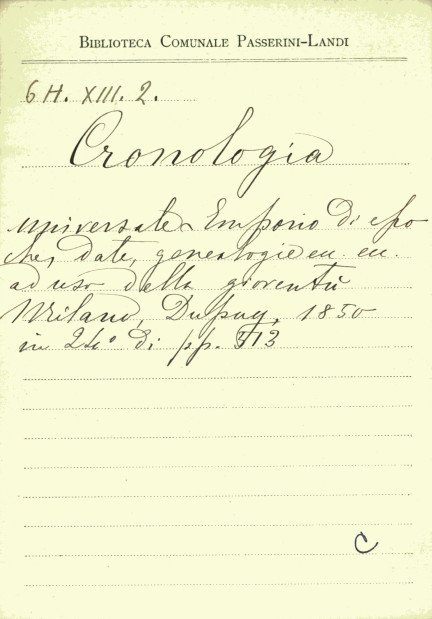 BIBLIOTECA COMUNALE PASSERINI-LANDI
6 H. XIII. 2.
Cronologia
universale Emporio di epo
che, date, genealogie ecc. ecc.
ad uso della gioventù
Milano, Dupuy, 1850
in 24° di pp. 513
C